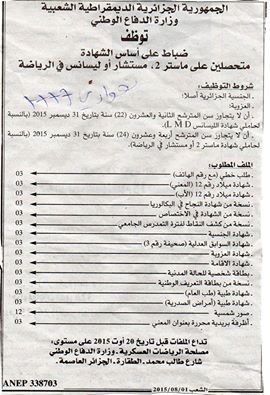 الجمهورية الجزائرية الديمقراطية الشعبية
وزارة الدفاع الوطني
توظف
ضباط على أساس الشهادة
متحصلين على ماستر 2، مستشار أو ليسانس في الرياضة
شروط التوظيف:
- الجنسية الجزائرية أصلا؛
- العزوبة؛
- أن لا يتجاوز سن المترشح الثانية والعشرون (22) سنة بتاريخ 31 ديسمبر 2015 (بالنسبة
لحاملي شهادة الليسانس L M D).
- أن لا يتجاوز سن المترشح أربعة وعشرون (24) سنة بتاريخ 31 ديسمبر 2015 (بالنسبة
لحاملي شهادة ماستر 2 أو مستشار في الرياضة).
الملف المطلوب:
- طلب خطي (مع رقم الهاتف) 03
- شهادة ميلاد رقم 12 (المعني) 03
- شهادة ميلاد رقم 12 (الأب) 03
- نسخة من شهادة النجاح في البكالوريا 03
- نسخة من الشهادة في الاختصاص 03
- نسخة من كشف النقاط لفترة التدرج الجامعي 03
- شهادة الجنسية 03
- شهادة السوابق العدلية (صحيفة رقم 3) 03
- شهادة العزوبة 03
- شهادة الاقامة 03
- بطاقة شخصية للحالة المدنية 03
- نسخة من بطاقة التعريف الوطنية 03
- شهادة طبية (طب العام) 03
- شهادة طبية (أمراض الصدرية) 03
- صور شمسية 12
- أظرفة بريدية محررة بعنوان المعني 03
تداع الملفات قبل تاريخ 20 أوت 2015 على مستوى:
مصلحة الرياضات العسكرية - وزارة الدفاع الوطني
شارع طالب محمد، الطقارة، الجزائر العاصمة.
ANEP 338703
الشعب 2015/08/01